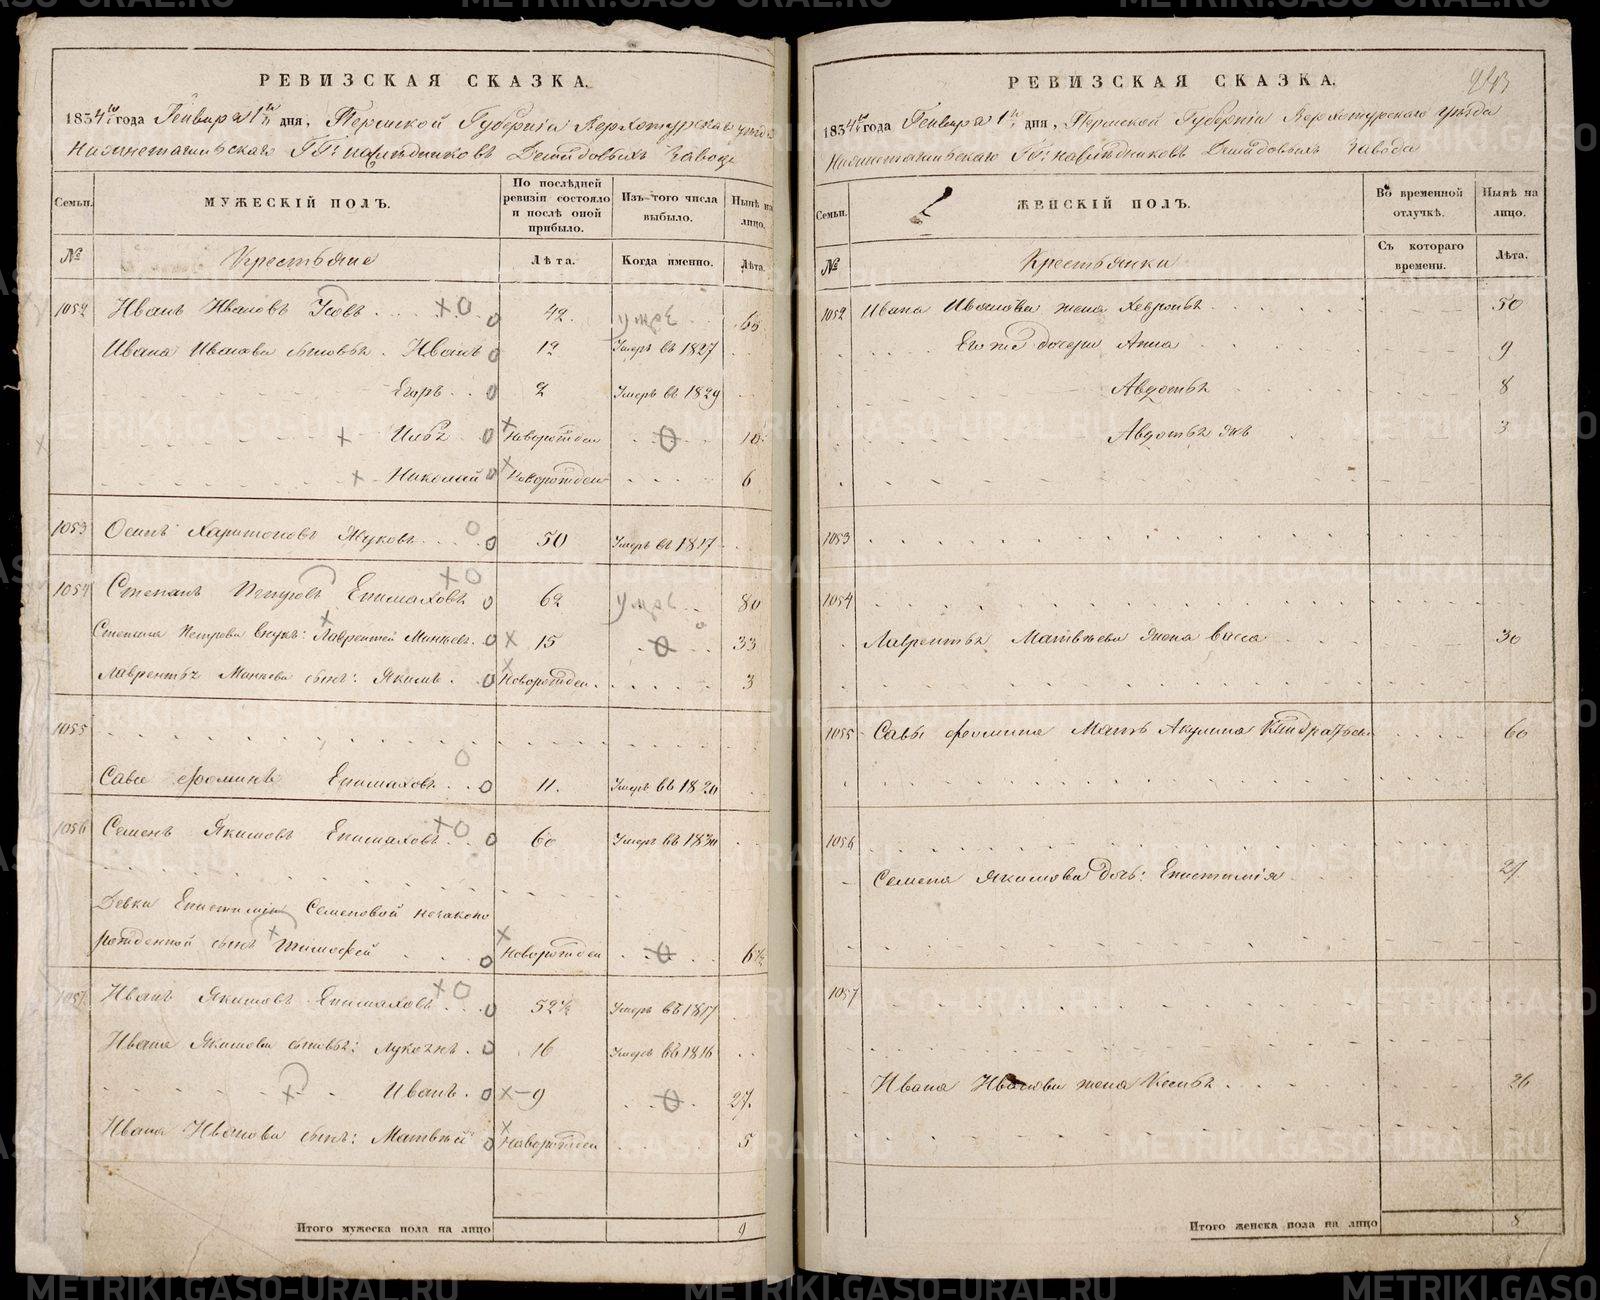 РЕВИЗСКАЯ СКАЗКА.
1834го года Генваря 1го дня, Пермской Губернiи Верхотурскаго уезда
Нижнетагильскаго ГГ: наследниковъ Демидовыхъ Завода
Семьи.
МУЖЕСКIЙ ПОЛЪ.
По последней ревизiи состояло и после оной прибыло.
Изъ того числа выбыло.
Ныне на лицо.
№
Крестьяне
Лета.
Когда именно.
Лета.
1052 Иванъ Ивановъ Усовъ 42. 60
Ивана Иванова сыновья. Иванъ 12 Умеръ въ 1827
Егоръ 2 Умеръ въ 1829
Илья новорожден 10
Николай новорожден 6
1053 Осипъ Харитоновъ Жуковъ 50 Умеръ въ 1827
1054 Степанъ Петровъ Епимаховъ 62 80
Степана Петрова внукъ: Лаврентей 15 33
сынъ: Якимъ новорожден 3
1055
Сава Фоминъ Епимаховъ 11. Умеръ въ 1820
1056 Семенъ Якимовъ Епимаховъ 60 Умеръ въ 1830
Девки Епистимiи Семеновой незаконо
рожденной сынъ Тимофей новорожден 6½
1057 Иванъ Якимовъ Епимаховъ 52½ Умеръ въ 1817
Ивана Якимова сыновья: 16 Умеръ въ 1816
Иванъ 9 27.
Ивана Иванова сынъ: Матвей новорожден 5
Итого мужеска пола на лицо 9
243
РЕВИЗСКАЯ СКАЗКА.
1834го года Генваря 1го дня, Пермской Губернiи Верхотурскаго уезда
Нижнетагильскаго ГГ: наследниковъ Демидовыхъ Завода
Семьи.
ЖЕНСКIЙ ПОЛЪ.
Во временной отлучке.
Ныне на лицо.
№
Крестьянки
Съ котораго времени.
Лета.
1052 Ивана Иванова жена Хевронья 50
Его же дочери Анна 9
Авдотья 8
Авдотья же 3
1053
1054
Лаврентья Матвеева жена Васса 30
1055 Савы Фомина Мать Акулина 60
1056
Семена Якимова дочь: Епистимiя 27
1057
Ивана Иванова жена 26
Итого женска пола на лицо 8
METRIKI.GASO-URAL.RU